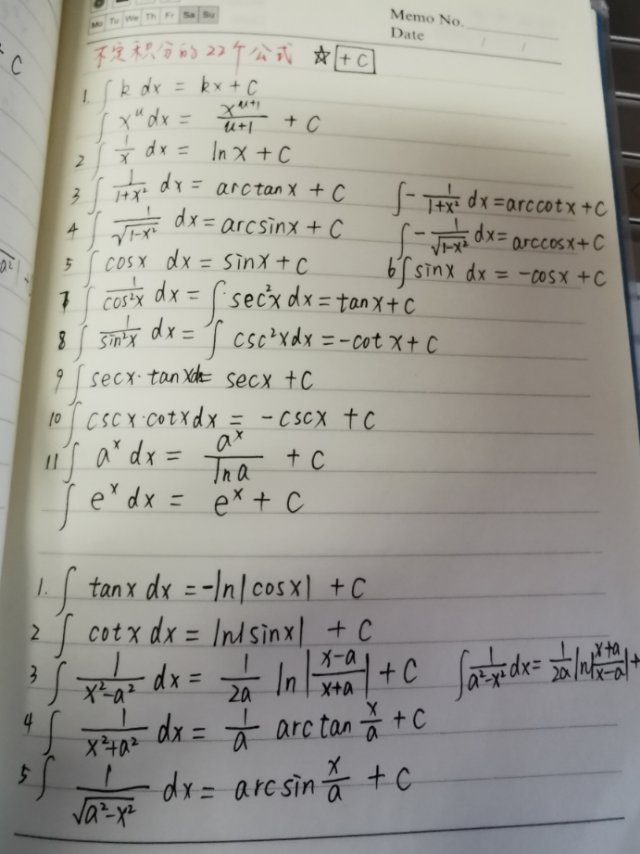 Mo Tu We Th Fr Sa Su
Memo No.
Date / /
不定积分的22个公式 ☆ +C
C
1. ∫ k dx = kx + C
∫ x^u dx = x^(u+1)/(u+1) + C
2 ∫ 1/x dx = ln x + C
3 ∫ 1/(1+x²) dx = arctan x + C ∫ - 1/(1+x²) dx = arccot x + C
4 ∫ 1/√(1-x²) dx = arcsin x + C ∫ - 1/√(1-x²) dx = arccos x + C
5 ∫ cosx dx = sinx + C 6 ∫ sinx dx = -cosx + C
7 ∫ 1/cos²x dx = ∫ sec²x dx = tanx + C
8 ∫ 1/sin²x dx = ∫ csc²x dx = -cot x + C
9 ∫ secx · tanx dx = secx + C
10 ∫ cscx · cotx dx = -cscx + C
11 ∫ a^x dx = a^x/ln a + C
∫ e^x dx = e^x + C
1. ∫ tanx dx = -ln|cosx| + C
2 ∫ cotx dx = ln|sinx| + C
3 ∫ 1/(x²-a²) dx = 1/2a ln|(x-a)/(x+a)| + C ∫ 1/(a²-x²) dx = 1/2a ln|(x+a)/(x-a)| +
4 ∫ 1/(x²+a²) dx = 1/a arctan x/a + C
5 ∫ 1/√(a²-x²) dx = arcsin x/a + C